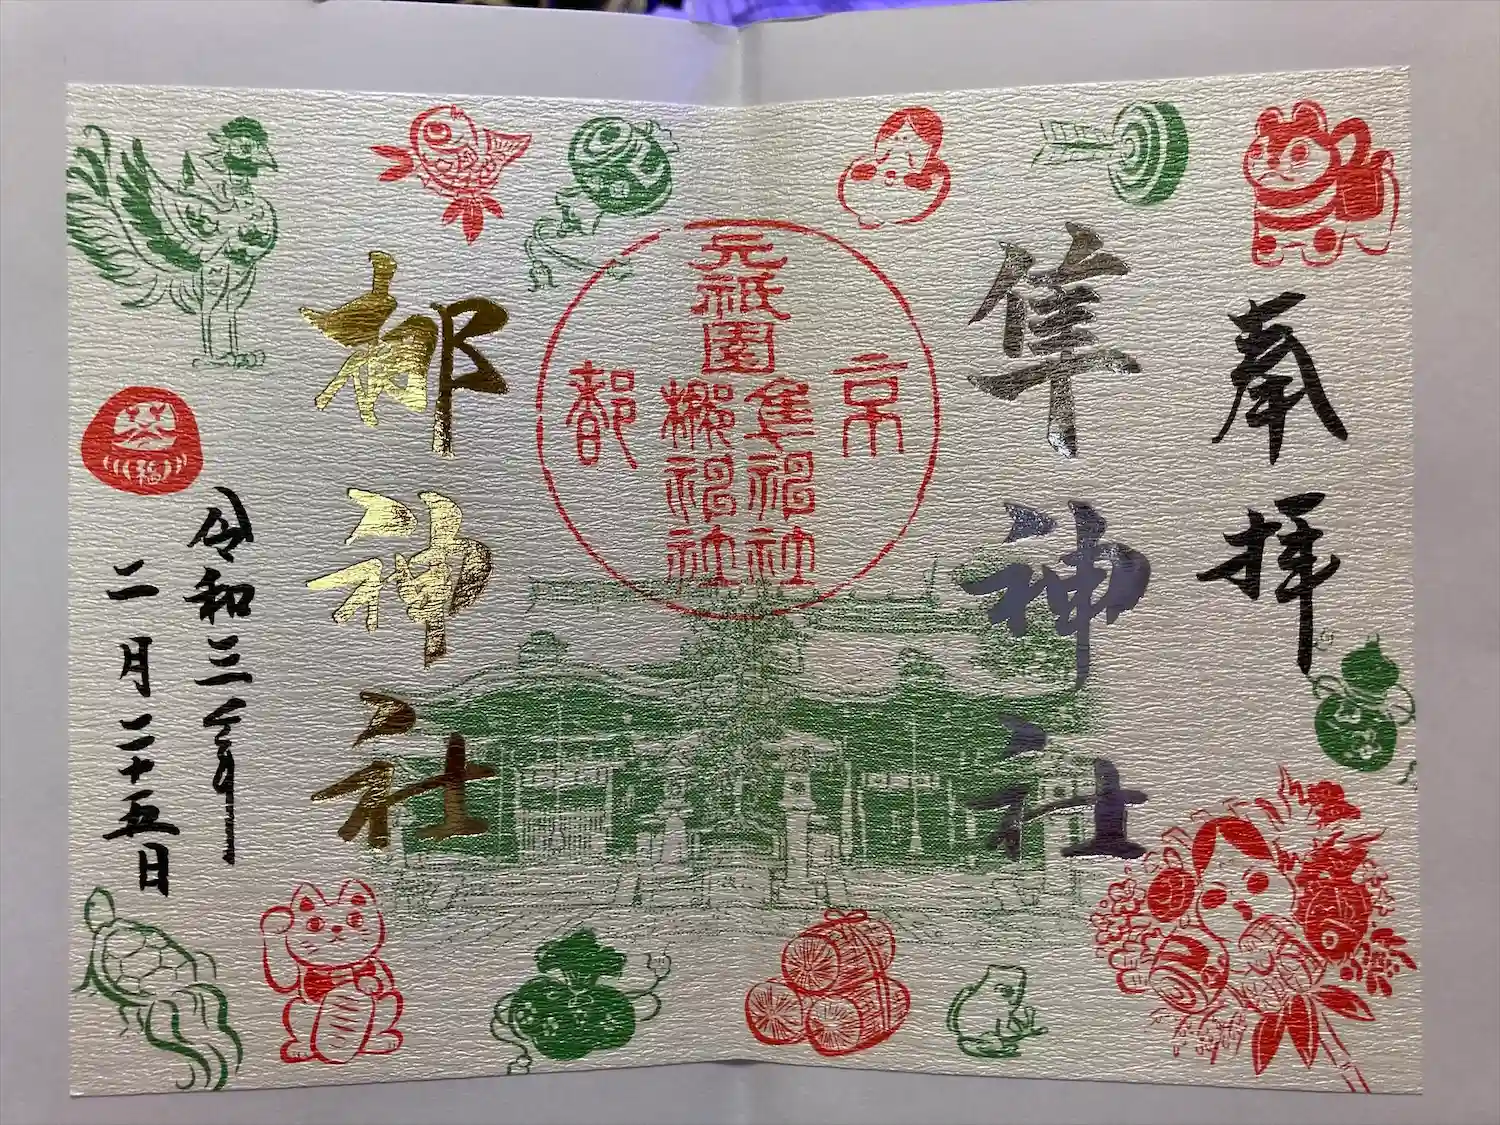 奉拝
隼神社
京都
元祇園
隼神社
梛神社
梛神社
令和三年
二月二十五日
福